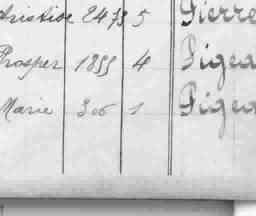 Aristide 2473 5 Pierre
Prosper 1855 4 Pigea
Marie 306 1 Pigea